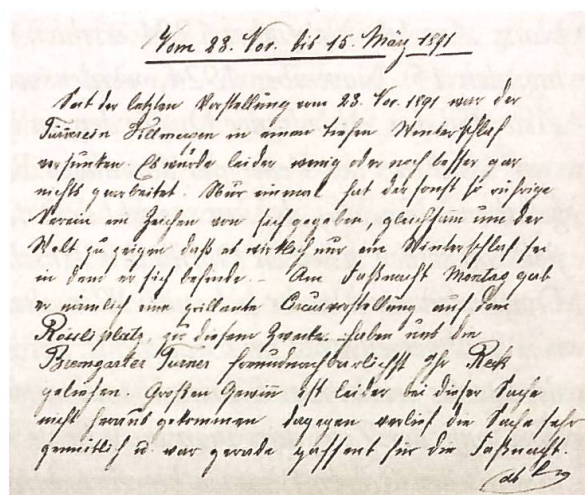 Vom 28. Nov. bis 15. März 1891
Seit der letzten Vorstellung vom 28. Nov. 1891 war der
Turnverein Dillmergen in einem tiefen Winterschlaf
versunken. Es wurde leider wenig oder noch besser gar
nichts gearbeitet. Nur einmal hat der sonst so rührige
Verein ein Zeichen von sich gegeben, gleichsam um der
Welt zu zeigen daß es wirklich nur ein Winterschlaf sei
in dem er sich befinde. Am Faßnacht Montag gab
er nämlich eine brillante Circusvorstellung auf dem
Rössliplatz, zu diesem Zwecke haben uns die
Bremgarter Turner freundnachbarlichst ihr Reck
geliehen. Großen Gewinn ist leider bei dieser Sache
nicht heraus gekommen dagegen verlief die Sache sehr
gemütlich u. war gerade passend für die Faßnacht.